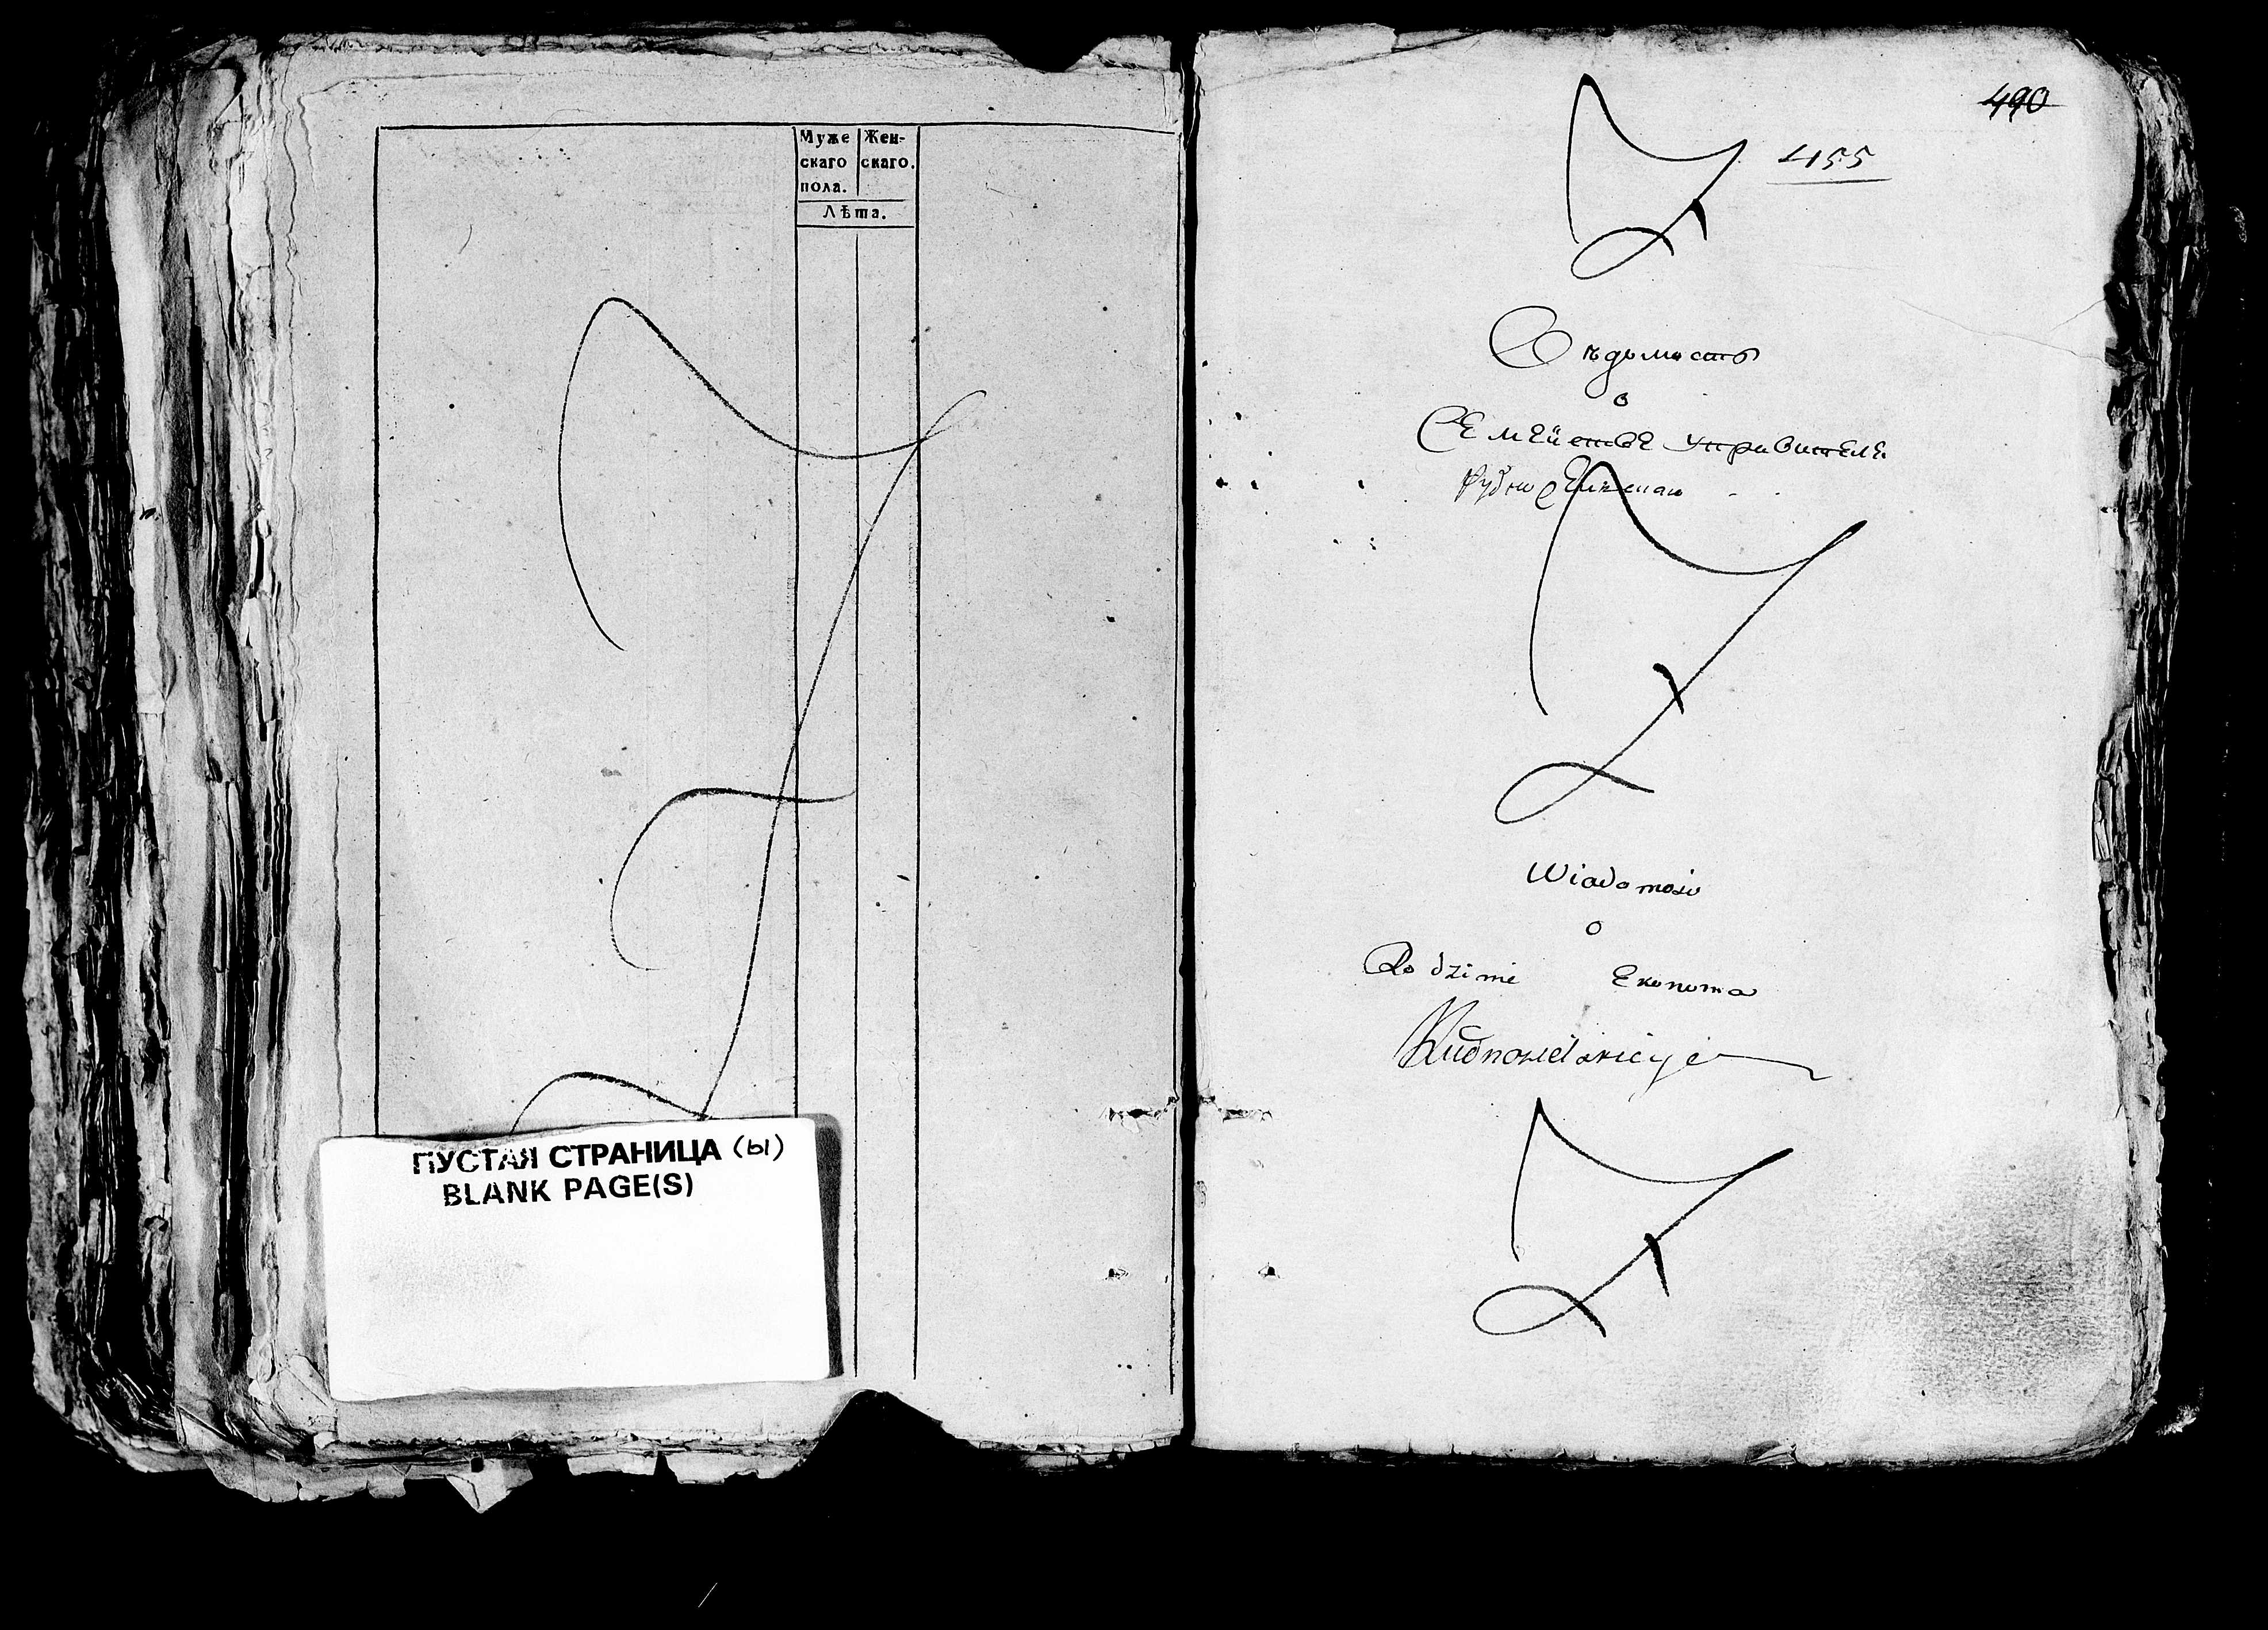 Муже Жен-
скаго скаго.
пола.
Лѣта.
ПУСТАЯ СТРАНИЦА (Ы)
BLANK PAGE(S)
490
455
Вѣдомость
о
Семействе управителя
Wiadomość
o
Rodzinie Ekonoma